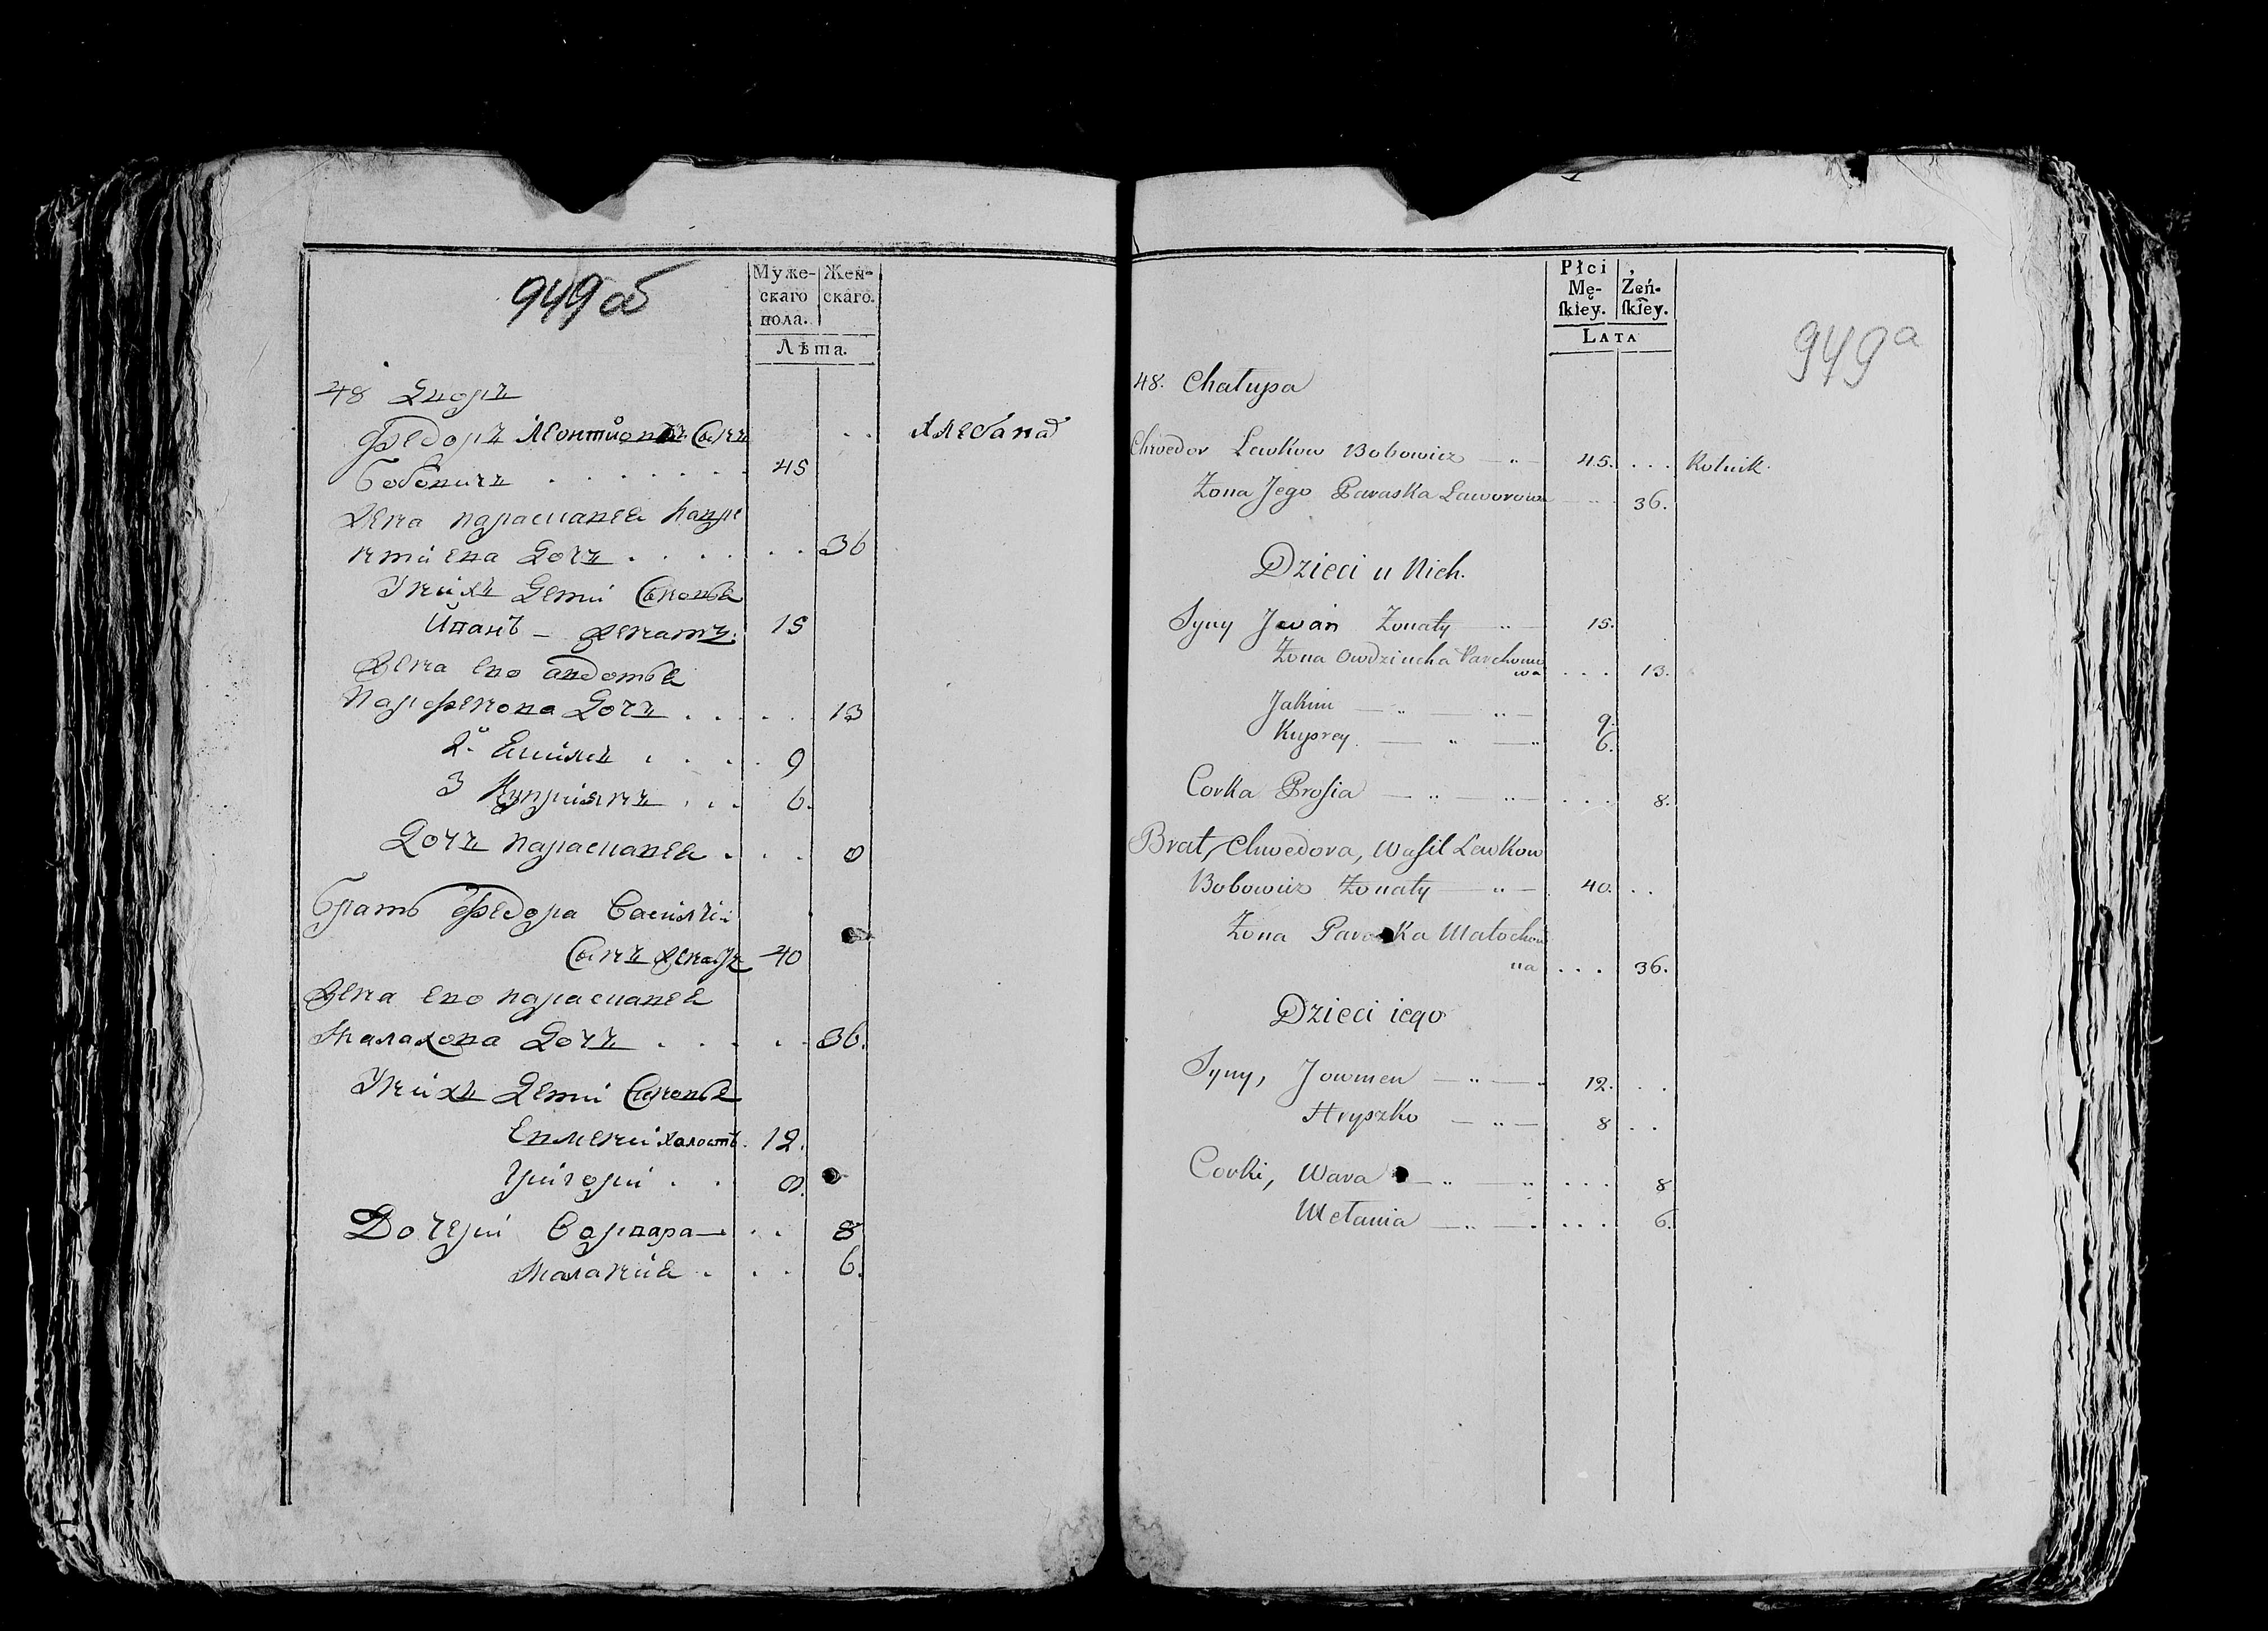 949 об
Муже-
скаго
пола.
Жен-
скаго.
Лѣта.
48 Дворъ
Федоръ Леонтиовъ Сынъ
Хлебопа
Бобовичъ . . . . . . 45
Жена Парасцавея Лавре
нтиева Дочь . . . . . . 36
У нихъ Дети Сыновья
Иванъ - женатъ. 15
Жена Ево Авдотья
Парфенова Дочь . . . . . 13
2й Екимъ . . . . 9
3 Куприянъ . . . 6.
Дочь Парасцавея . . . 8
Братъ Федора Василий
Сынъ женатъ 40
Жена Ево Парасцавея
Малахова Дочь . . . . . 36.
У нихъ Дети Сыновья
Евмений холостъ. 12.
Григори . . 8.
Дочери Варвара — . . 8
Малания . . . 6.
Płci
Mę-
skiey.
Żeń-
skiey.
LATA
949 а
48. Chałupa
Chwedor Lewkow Bobowicz — „ — 45. . . . Rolnik.
Zona Jego Paraska Laworowa — „ 36.
Dzieci u Nich.
Syny Jwan Zonaty — „ — 15.
Zona Owdziucha Parchomo
wa . . . 13.
Jakim — „ — „ — 9.
Kuprey. — „ — „ 6.
Corka Prosia — „ — „ — . . . 8.
Brat, Chwedora, Wasil Lewkow
Bobowicz Zonaty — „ — 40. . .
Zona Paraska Małochow
na . . . 36.
Dzieci iego
Syny, Jowmen — „ — „ 12. . .
Hryszko — „ — 8 . .
Corki, Wara — „ — „ . . . 8
Mełania — „ — . . . . 6.